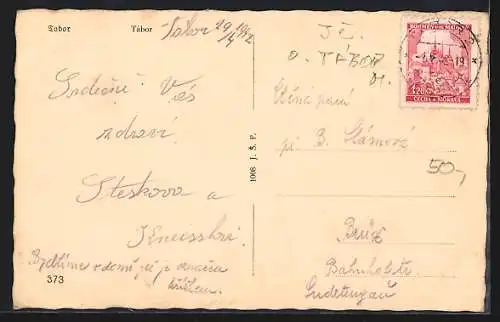 Tabor Tábor Tábor 29/4 1942
Srdečně Vás
zdraví
Steskova a
Bydlíme v domě, jež je označen
373
1008 J. Š. P.
O. TÁBOR
BÖHMEN UND MÄHREN
ČECHY A MORAVA
Ctěná paní
pí B. Slámová
50,-
Brüx
Bahnhofstr.
Sudetengau